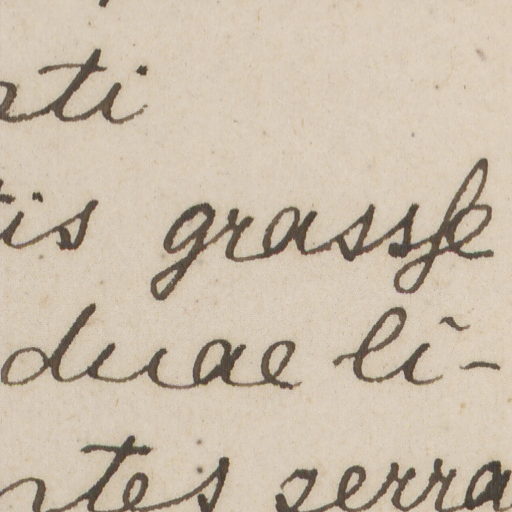 ti
tis grasse
duae li-
ntes serra